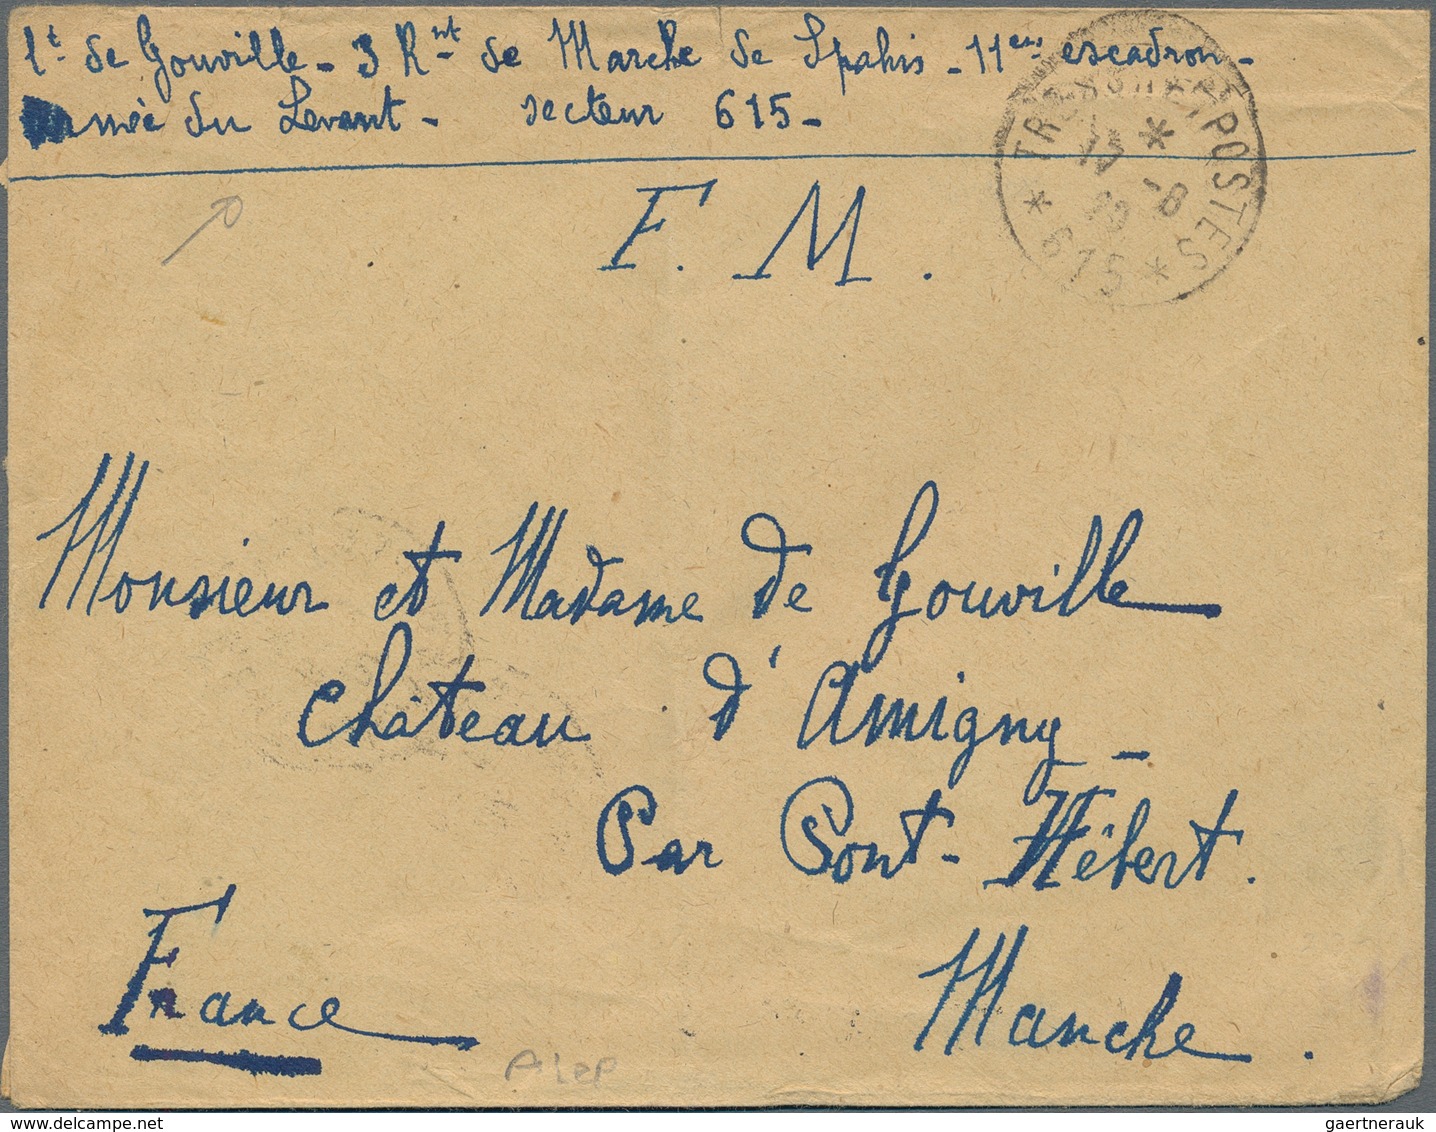 Lt de Gouville - 3 Rnt de Marche de Spahis - 11em escadron -
Armée du Levant - secteur 615 -
TRESOR ET POSTES
* 615 *
F. M.
Monsieur et Madame de Gouville
Château d'Amigny -
Par Pont-Hébert.
Manche.
France
Alep
gaertnerauk